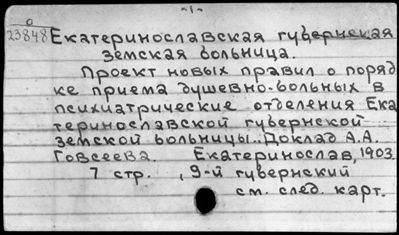 -1-
0
23848 Екатеринославская губернская
земская больница.
Проект новых правил о поряд
ке приема душевно-больных в
психиатрические отделения Ека
теринославской губернской
земской больницы.. Доклад А.А.
Говсеева. Екатеринослав, 1903.
7 стр. , 9-й губернский
см. след. карт.